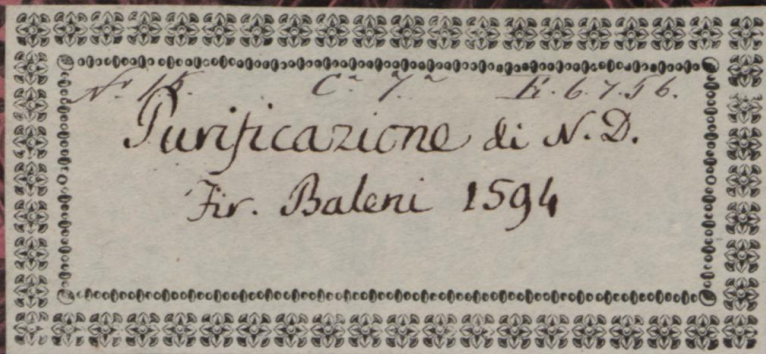 Nº 15. Cª 7ª R. 6.7.56.
Purificazione di N. D.
Fir. Baleni 1594